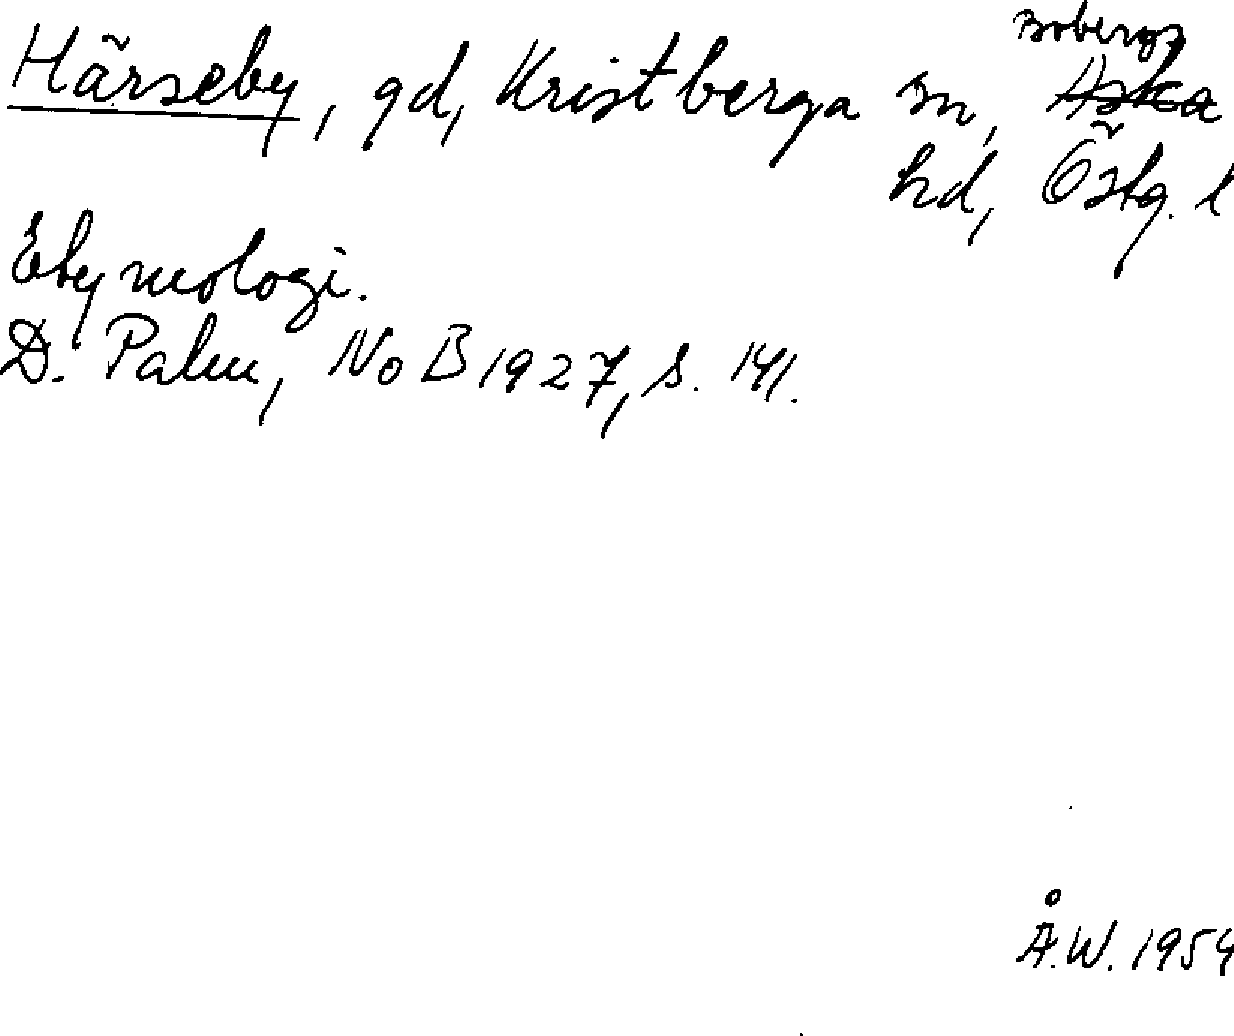 Härseby, gd, Kristberga sn, Bobergs
hd, Östg. l
Etymologi.
D. Palm, NoB 1927, s. 141.
Å.W. 1954